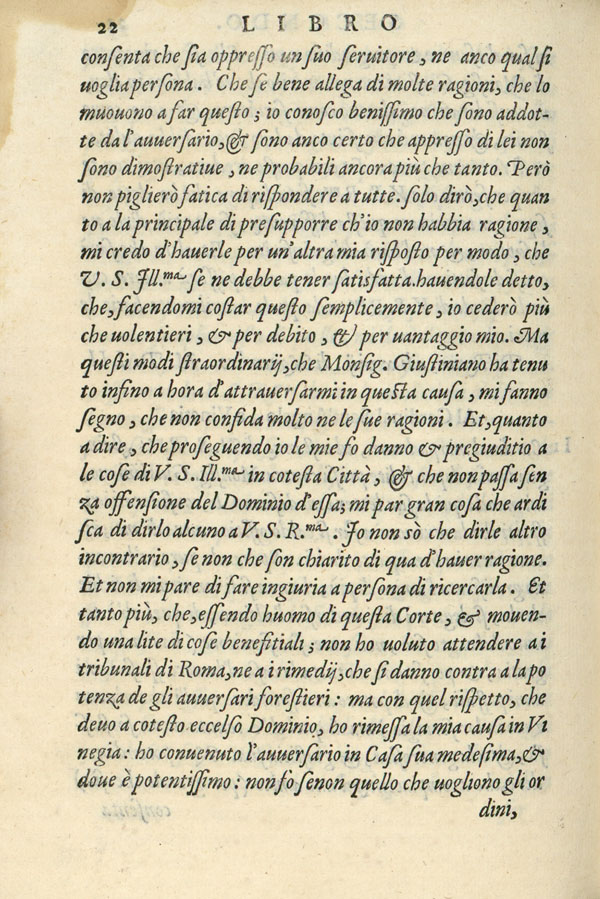 22 LIBRO
consenta che sia oppresso un suo seruitore, ne anco qual si
uoglia persona. Che se bene allega di molte ragioni, che lo
muouono a far questo; io conosco benissimo che sono addot-
te da l'auuersario, & sono anco certo che appresso di lei non
sono dimostratiue, ne probabili ancora più che tanto. Però
non piglierò fatica di rispondere a tutte. solo dirò, che quan
to a la principale di presupporre ch'io non habbia ragione,
mi credo d'hauerle per un'altra mia risposto per modo, che
V. S. Ill.ma se ne debbe tener satisfatta. hauendole detto,
che, facendomi costar questo semplicemente, io cederò più
che uolentieri, & per debito, & per uantaggio mio. Ma
questi modi straordinarij, che Monsig. Giustiniano ha tenu
to infino a hora d'attrauersarmi in questa causa, mi fanno
segno, che non confida molto ne le sue ragioni. Et, quanto
a dire, che proseguendo io le mie fo danno & pregiuditio a
le cose di V. S. Ill.ma in cotesta Città, & che non passa sen
za offensione del Dominio d'essa; mi par gran cosa che ardi
sca di dirlo alcuno a V. S. R.ma. Io non sò che dirle altro
incontrario, se non che son chiarito di qua d'hauer ragione.
Et non mi pare di fare ingiuria a persona di ricercarla. Et
tanto più, che, essendo huomo di questa Corte, & mouen-
do una lite di cose benefitiali; non ho uoluto attendere a i
tribunali di Roma, ne a i rimedij, che si danno contra a la po
tenza de gli auuersari forestieri: ma con quel rispetto, che
deuo a cotesto eccelso Dominio, ho rimessa la mia causa in Vi
negia: ho conuenuto l'auuersario in Casa sua medesima, &
doue è potentissimo: non fò senon quello che uogliono gli or
dini,